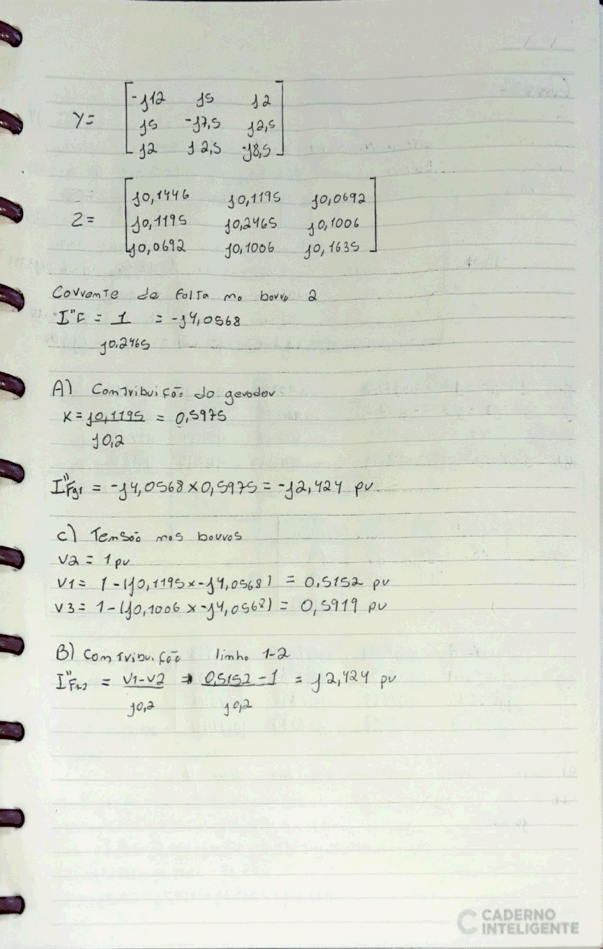 Y= [-j12 j5 j2
j5 -j7,5 j2,5
j2 j2,5 -j8,5]
Z= [j0,1446 j0,1195 j0,0692
j0,1195 j0,2465 j0,1006
j0,0692 j0,1006 j0,1635]
Corrente de falta no barra 2
I"F = 1 = -j4,0568
j0,2465
A) Contribuição do gerador
K= j0,1195 = 0,5975
j0,2
I"Fg1 = -j4,0568 x 0,5975 = -j2,424 pu.
C) Tensão nos barras
V2 = 1 pu
V1 = 1 - (j0,1195 x -j4,0568) = 0,5152 pu
V3 = 1 - (j0,1006 x -j4,0568) = 0,5919 pu
B) Contribuição linha 1-2
I"F12 = V1-V2 → 0,5152 - 1 = j2,424 pu
j0,2 j0,2
CADERNO
INTELIGENTE